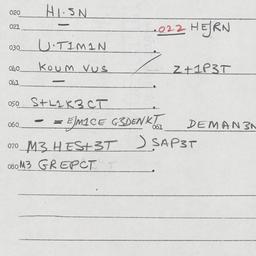 020 HI·3N
021 — .022 HEʃRN
030 U·T1M1N
040 KOUM VUS / Z+1P3T
041 —
050 S+L1K3CT
060 — = EʃM1CE G3DENKT 061 DEMAN3N
070 M3 HES+3T ) SAP3T
080 M3 GREPCT